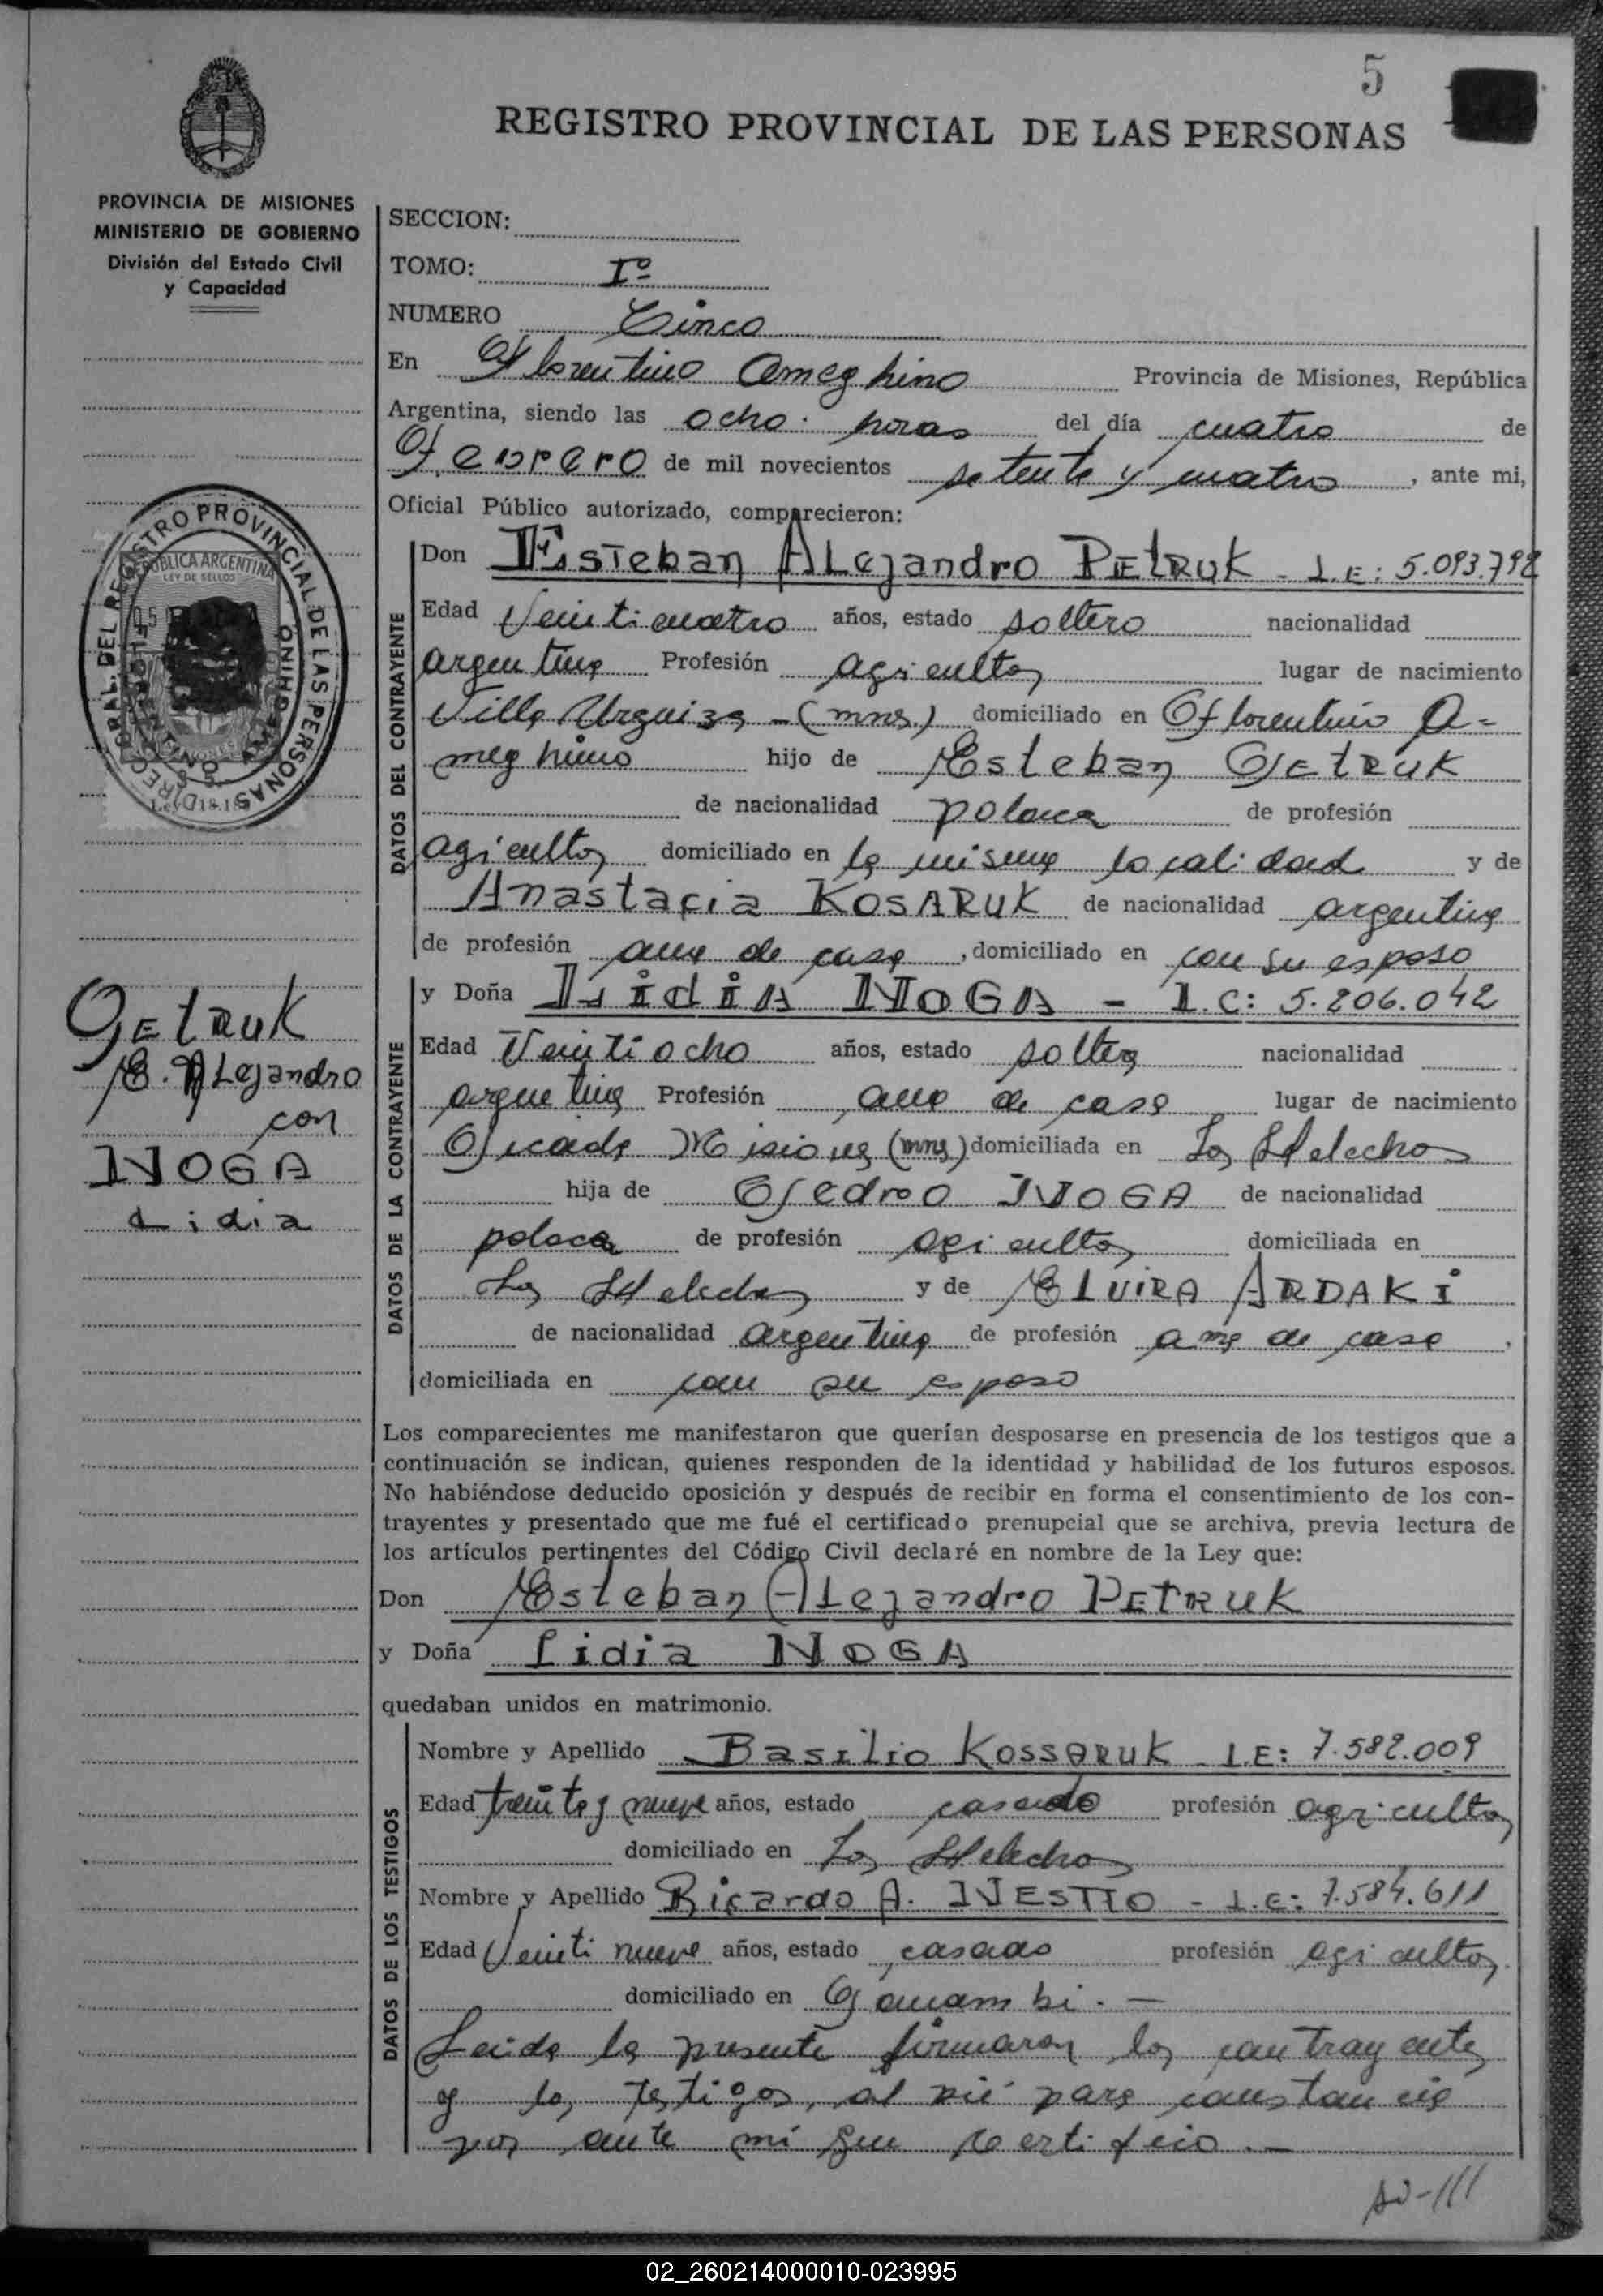 5
REGISTRO PROVINCIAL DE LAS PERSONAS
PROVINCIA DE MISIONES
MINISTERIO DE GOBIERNO
División del Estado Civil
y Capacidad
SECCION:
TOMO: Iº
NUMERO Cinco
En Florentino Ameghino Provincia de Misiones, República
Argentina, siendo las ocho horas del día cuatro de
Febrero de mil novecientos setenta y cuatro, ante mi,
Oficial Público autorizado, comparecieron:
DATOS DEL CONTRAYENTE
Don Esteban Alejandro PETRUK - L.E: 5.093.792
Edad Veinticuatro años, estado soltero nacionalidad
argentina Profesión agricultor lugar de nacimiento
Villa Urquiza - (mns.) domiciliado en Florentino A-
meghino hijo de Esteban PETRUK
de nacionalidad polaca de profesión
agricultor domiciliado en la misma localidad y de
Anastacia KOSARUK de nacionalidad argentina
de profesión ama de casa, domiciliado en con su esposo
DATOS DE LA CONTRAYENTE
y Doña Lidia NOGA - L.C: 5.206.042
Edad Veintiocho años, estado soltera nacionalidad
argentina Profesión ama de casa lugar de nacimiento
Picada Misiones (mns) domiciliada en Los Helechos
hija de Pedro NOGA de nacionalidad
polaca de profesión agricultor domiciliada en
Los Helechos y de ELVIRA ARDAKI
de nacionalidad argentina de profesión ama de casa,
domiciliada en con su esposo
PETRUK
E. Alejandro
con
NOGA
Lidia
REGISTRO PROVINCIAL DE LAS PERSONAS
REPUBLICA ARGENTINA
LEY DE SELLOS
Los comparecientes me manifestaron que querían desposarse en presencia de los testigos que a
continuación se indican, quienes responden de la identidad y habilidad de los futuros esposos.
No habiéndose deducido oposición y después de recibir en forma el consentimiento de los con-
trayentes y presentado que me fué el certificado prenupcial que se archiva, previa lectura de
los artículos pertinentes del Código Civil declaré en nombre de la Ley que:
Don Esteban Alejandro PETRUK
y Doña Lidia NOGA
quedaban unidos en matrimonio.
DATOS DE LOS TESTIGOS
Nombre y Apellido Basilio KOSSARUK L.E: 7.582.009
Edad treinta y nueve años, estado casado profesión agricultor
domiciliado en Los Helechos
Nombre y Apellido Ricardo A. - L.E: 7.584.611
Edad Veintinueve años, estado casado profesión agricultor
domiciliado en Panambi. -
Leida la presente firmaron los contrayentes
y los testigos, al pié para constancia
por ante mí que certifico. -
02_260214000010-023995